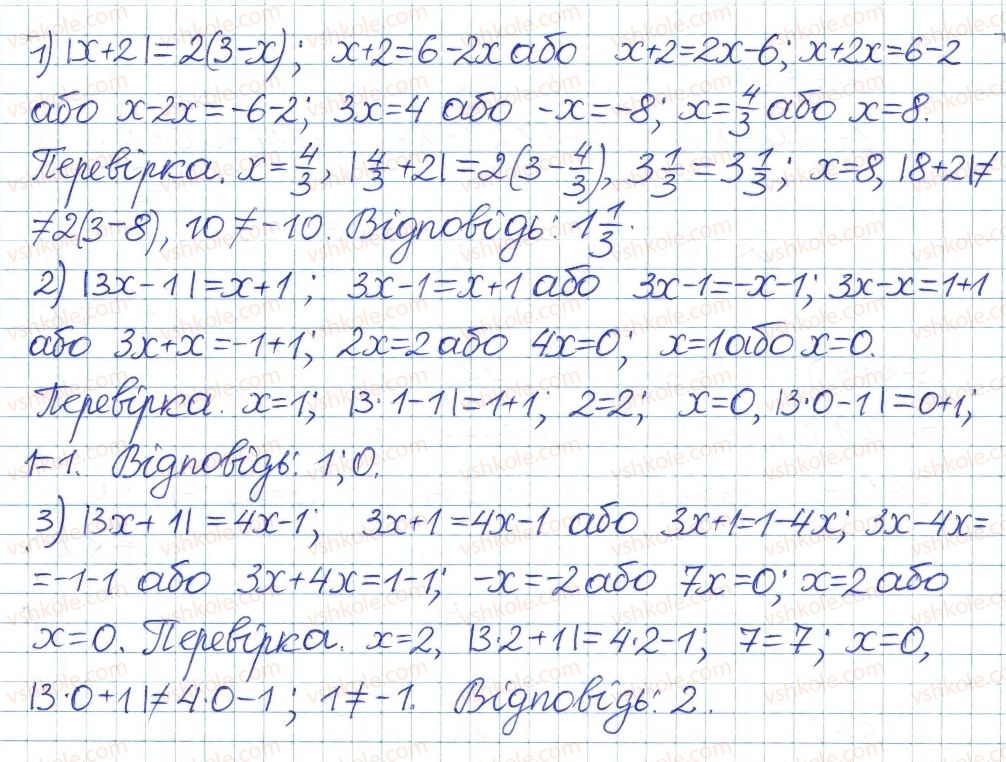 1) |x+2|=2(3-x); x+2=6-2x або x+2=2x-6; x+2x=6-2
або x-2x=-6-2; 3x=4 або -x=-8; x=4/3 або x=8.
Перевірка. x=4/3, |4/3+2|=2(3-4/3), 3 1/3=3 1/3; x=8, |8+2|≠
≠2(3-8), 10≠-10. Відповідь: 1 1/3.
2) |3x-1|=x+1; 3x-1=x+1 або 3x-1=-x-1; 3x-x=1+1
або 3x+x=-1+1; 2x=2 або 4x=0; x=1 або x=0.
Перевірка. x=1; |3·1-1|=1+1; 2=2; x=0, |3·0-1|=0+1;
1=1. Відповідь: 1; 0.
3) |3x+1|=4x-1; 3x+1=4x-1 або 3x+1=1-4x; 3x-4x=
=-1-1 або 3x+4x=1-1; -x=-2 або 7x=0; x=2 або
x=0. Перевірка. x=2, |3·2+1|=4·2-1; 7=7; x=0,
|3·0+1|≠4·0-1; 1≠-1. Відповідь: 2.